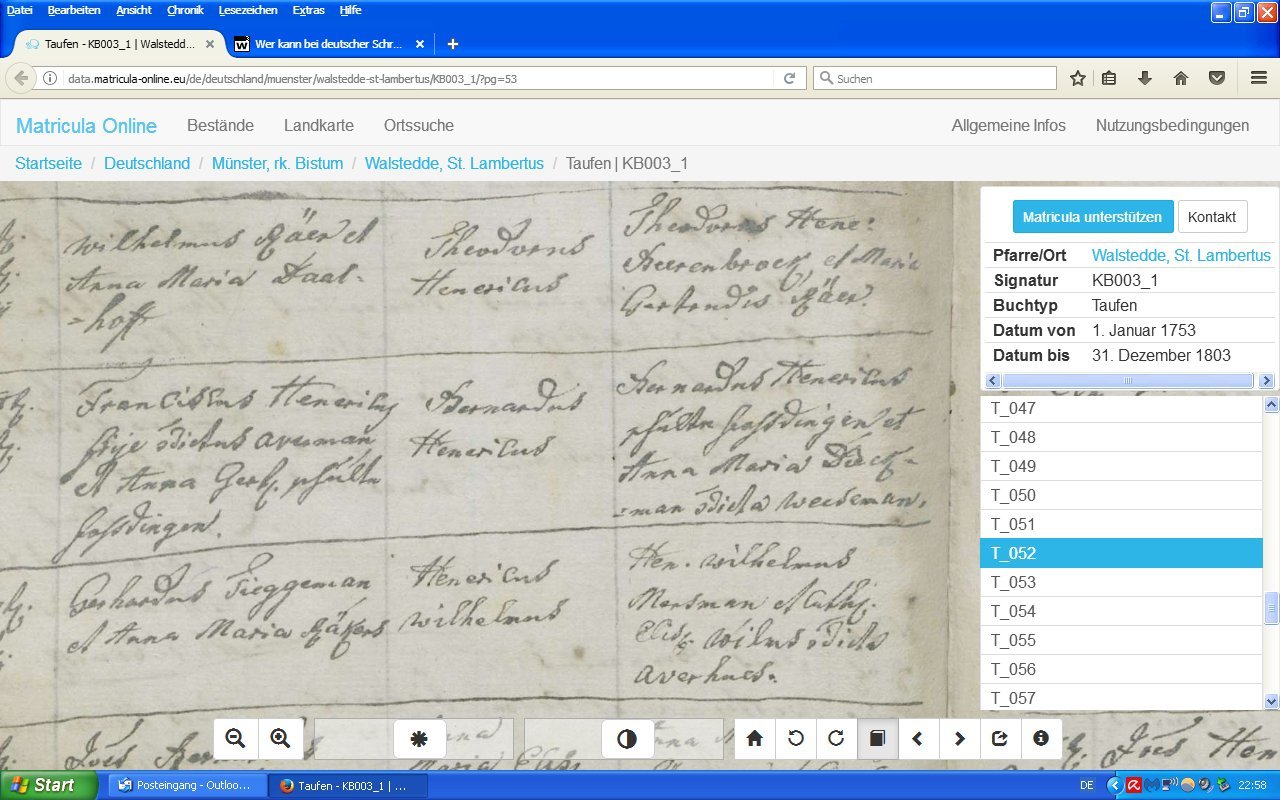 Datei Bearbeiten Ansicht Chronik Lesezeichen Extras Hilfe
Taufen - KB003_1 | Walstedd...
Wer kann bei deutscher Schr...
data.matricula-online.eu/de/deutschland/muenster/walstedde-st-lambertus/KB003_1/?pg=53
Suchen
Matricula Online Bestände Landkarte Ortssuche Allgemeine Infos Nutzungsbedingungen
Startseite / Deutschland / Münster, rk. Bistum / Walstedde, St. Lambertus / Taufen | KB003_1
wilhelmus et
Anna Maria Daal-
=hoff
Theodorus
Henericus
Theodorus Hene:
Beerenbrock et Maria
Gertrudis
Franciscus Henericus
dictus averman
et Anna schulte
Bernardus
Henericus
Bernardus Henericus
schulte et
Anna Maria Dieck-
=man dicta weeseman.
Gerhardus Tieggeman
et Anna Maria
Henericus
wilhelmus
Hen. wilhelmus
Mersman et Cath.
Elis. wilms dicta
averhues.
Maria Elis
Joes
Joes Hen
Matricula unterstützen
Kontakt
Pfarre/Ort Walstedde, St. Lambertus
Signatur KB003_1
Buchtyp Taufen
Datum von 1. Januar 1753
Datum bis 31. Dezember 1803
T_047
T_048
T_049
T_050
T_051
T_052
T_053
T_054
T_055
T_056
T_057
Start
Posteingang - Outloo...
Taufen - KB003_1 | ...
DE
22:58